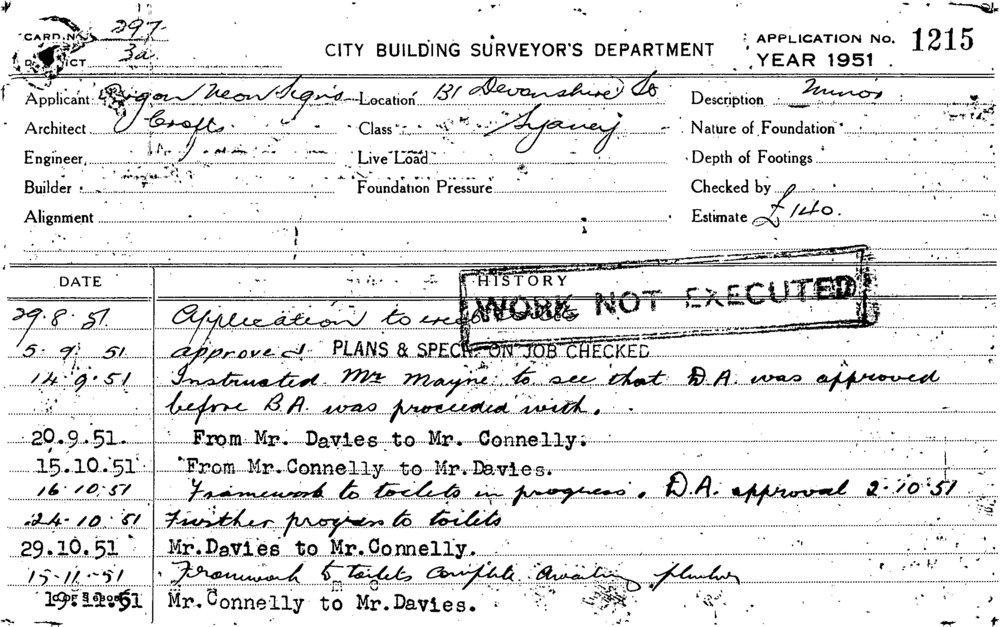 CARD No. 297
DISTRICT 3a.
CITY BUILDING SURVEYOR'S DEPARTMENT
APPLICATION No. 1215
YEAR 1951
Applicant Neon Signs Location 131 Devonshire St Description Minor
Architect Crofts Class Sydney Nature of Foundation
Engineer Live Load Depth of Footings
Builder Foundation Pressure Checked by
Alignment Estimate £140.
DATE HISTORY
WORK NOT EXECUTED
29.8.51 Application to
5.9.51 approved PLANS & SPECN. ON JOB CHECKED
14.9.51 Instructed Mr Mayne to see that D.A. was approved
before B.A. was proceeded with.
20.9.51. From Mr. Davies to Mr. Connelly.
15.10.51 From Mr.Connelly to Mr.Davies.
16.10.51 Framework to toilets in progress. D.A. approval 2.10.51
24.10.51 Further progress to toilets
29.10.51 Mr.Davies to Mr.Connelly.
15.11.51 Framework to toilets complete awaiting plumber
19.11.51 Mr.Connelly to Mr.Davies.